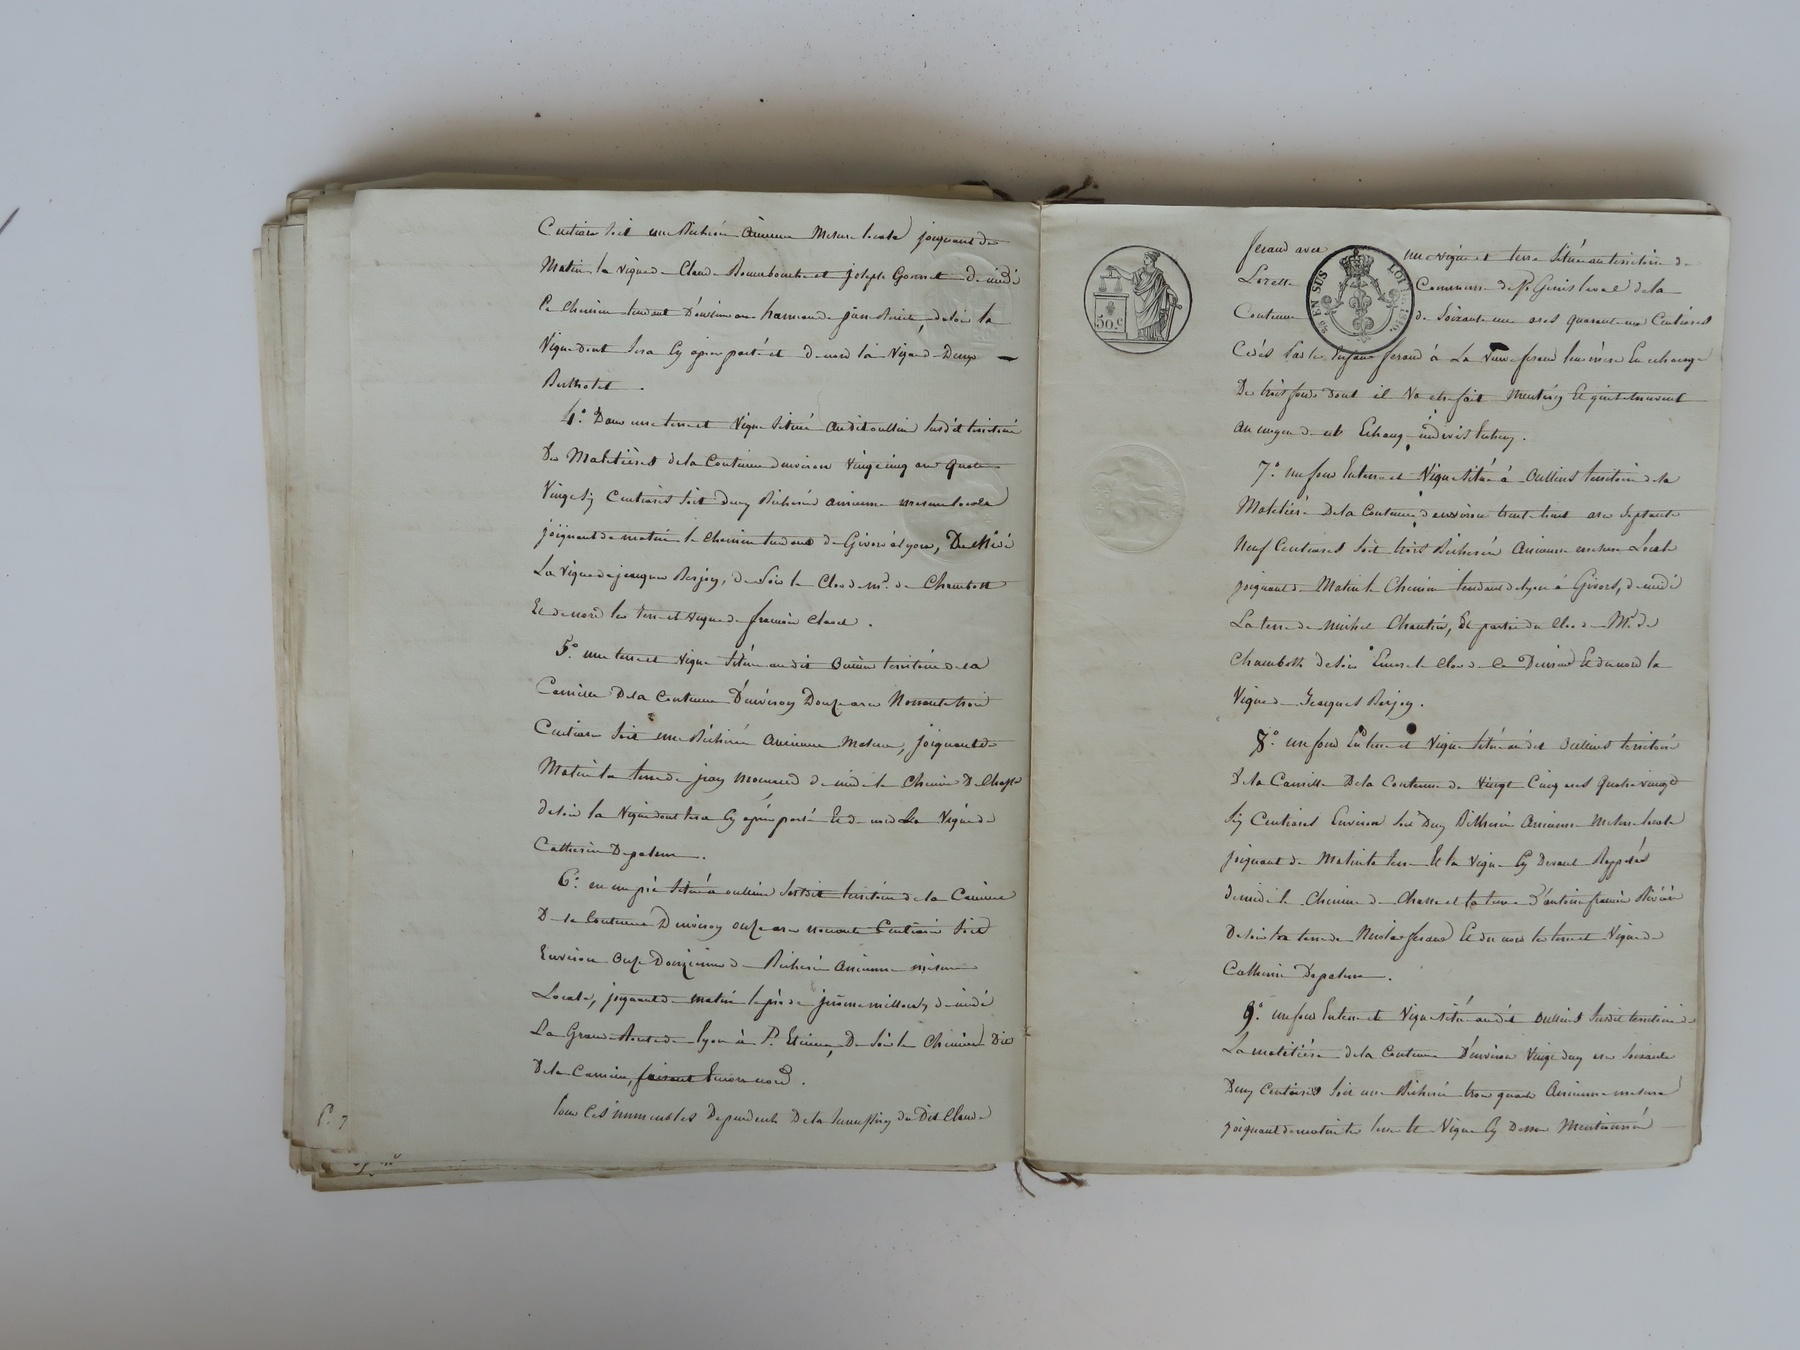 Centiares soit une Bicherée ancienne mesure locale joignant de
Matin la vigne de Claude Bourbourcha et joseph Gonnet de midi
Le Chemin tendant d' de jean de soir la
Vigne dont sera Cy après parlé et de nord la Vigne de Denys
Bertholet.
4.° Dans une terre et Vigne située audit oullins susdit territoire
Des Malitières de la Contenue d'environ Vingt cinq ares quatre
Vingt Six Centiares soit deux Bicherées ancienne mesure locale
joignant de matin le Chemin tendant de Givors à Lyon, De Midi
La Vigne de jacques Berjoy, de Soir le Clos de mr. de Chambost
Et de nord les terre et Vigne de françois Clavel.
5.° une terre et Vigne située au dit oullins territoire de la
Camille De la Contenue D'environ Douze ares Nonante trois
Centiares Soit une Bicherée ancienne Mesure, joignant de
Matin la terre de jean de midi le Chemin De Chasse
de soir la Vigne dont sera Cy après parlé Et de nord La Vigne de
Catherine Depalme.
6.° en un pré situé à oullins susdit territoire de la Camille
De la Contenue D'environ onze ares nonante Centiares Soit
Environ onze Douziemes de Bicherée ancienne mesure
Locale, joignant de matin le pré de jérôme de midi
La Grande Route de Lyon à St. Etienne, De Soir le Chemin Dit
De la Camille, faisant Encore nord.
Tous ces immeubles Dependants De la Succession du Dit Claude
P. 7
50 c
20 EN SUS
LOI
ferand avec une vigne et terre Située au territoire de
Lorette Commune de St Genis laval de la
Contenue de Soixante une ares quarante Centiares
Cédés par les Enfans ferand à La Veuve ferand leur mère En echange
De trois fonds dont il Va etre fait Mention Et qui se trouvent
au moyen de cet Echange indivis Entreux.
7.° un fond En terre et Vigne situé à Oullins territoire de la
Malitière De la Contenue d'environ trente huit ares Septante
Neuf Centiares Soit trois Bicherées Ancienne mesure Locale
joignant de Matin le Chemin tendant de Lyon à Givors, de midi
La terre de michel Chantin, Et partie du Clos de Mr. de
Chambost de Soir Encore le Clos de Ce Dernier Et du nord la
Vigne de Jacques Berjoy.
8.° un fond En terre et Vigne situé au dit Oullins territoire
De la Camille De la Contenue de Vingt Cinq ares quatre vingt
Six Centiares Environ Soit Deux Bicherées Ancienne Mesure locale
joignant de Matin la terre Et la Vigne Cy Devant Rappelés
de midi le Chemin de Chasse et la terre d'antoine françois
De soir la terre de Nicolas ferand Et du nord les terre et Vigne de
Catherine Depalme.
9.° un fond En terre et Vigne situé audit Oullins Susdit territoire de
La malitière de la Contenue D'environ Vingt deux ares Soixante
Deux Centiares Soit une Bicherée trois quarts Ancienne mesure
joignant de matin les terre Et Vigne Cy Dessus Mentionnés